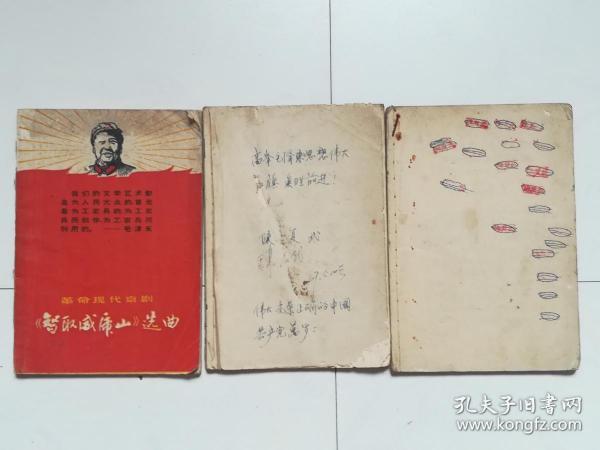 我们的文学艺术都
是为人民大众的,首先
是为工农兵的,为工农
兵而创作,为工农兵所
利用的。——毛泽东
革命现代京剧
《智取威虎山》选曲
高举毛泽东思想伟大
红旗 奋勇前进!
伟大光荣正确的中国
共产党万岁:
孔夫子旧书网
www.kongfz.com